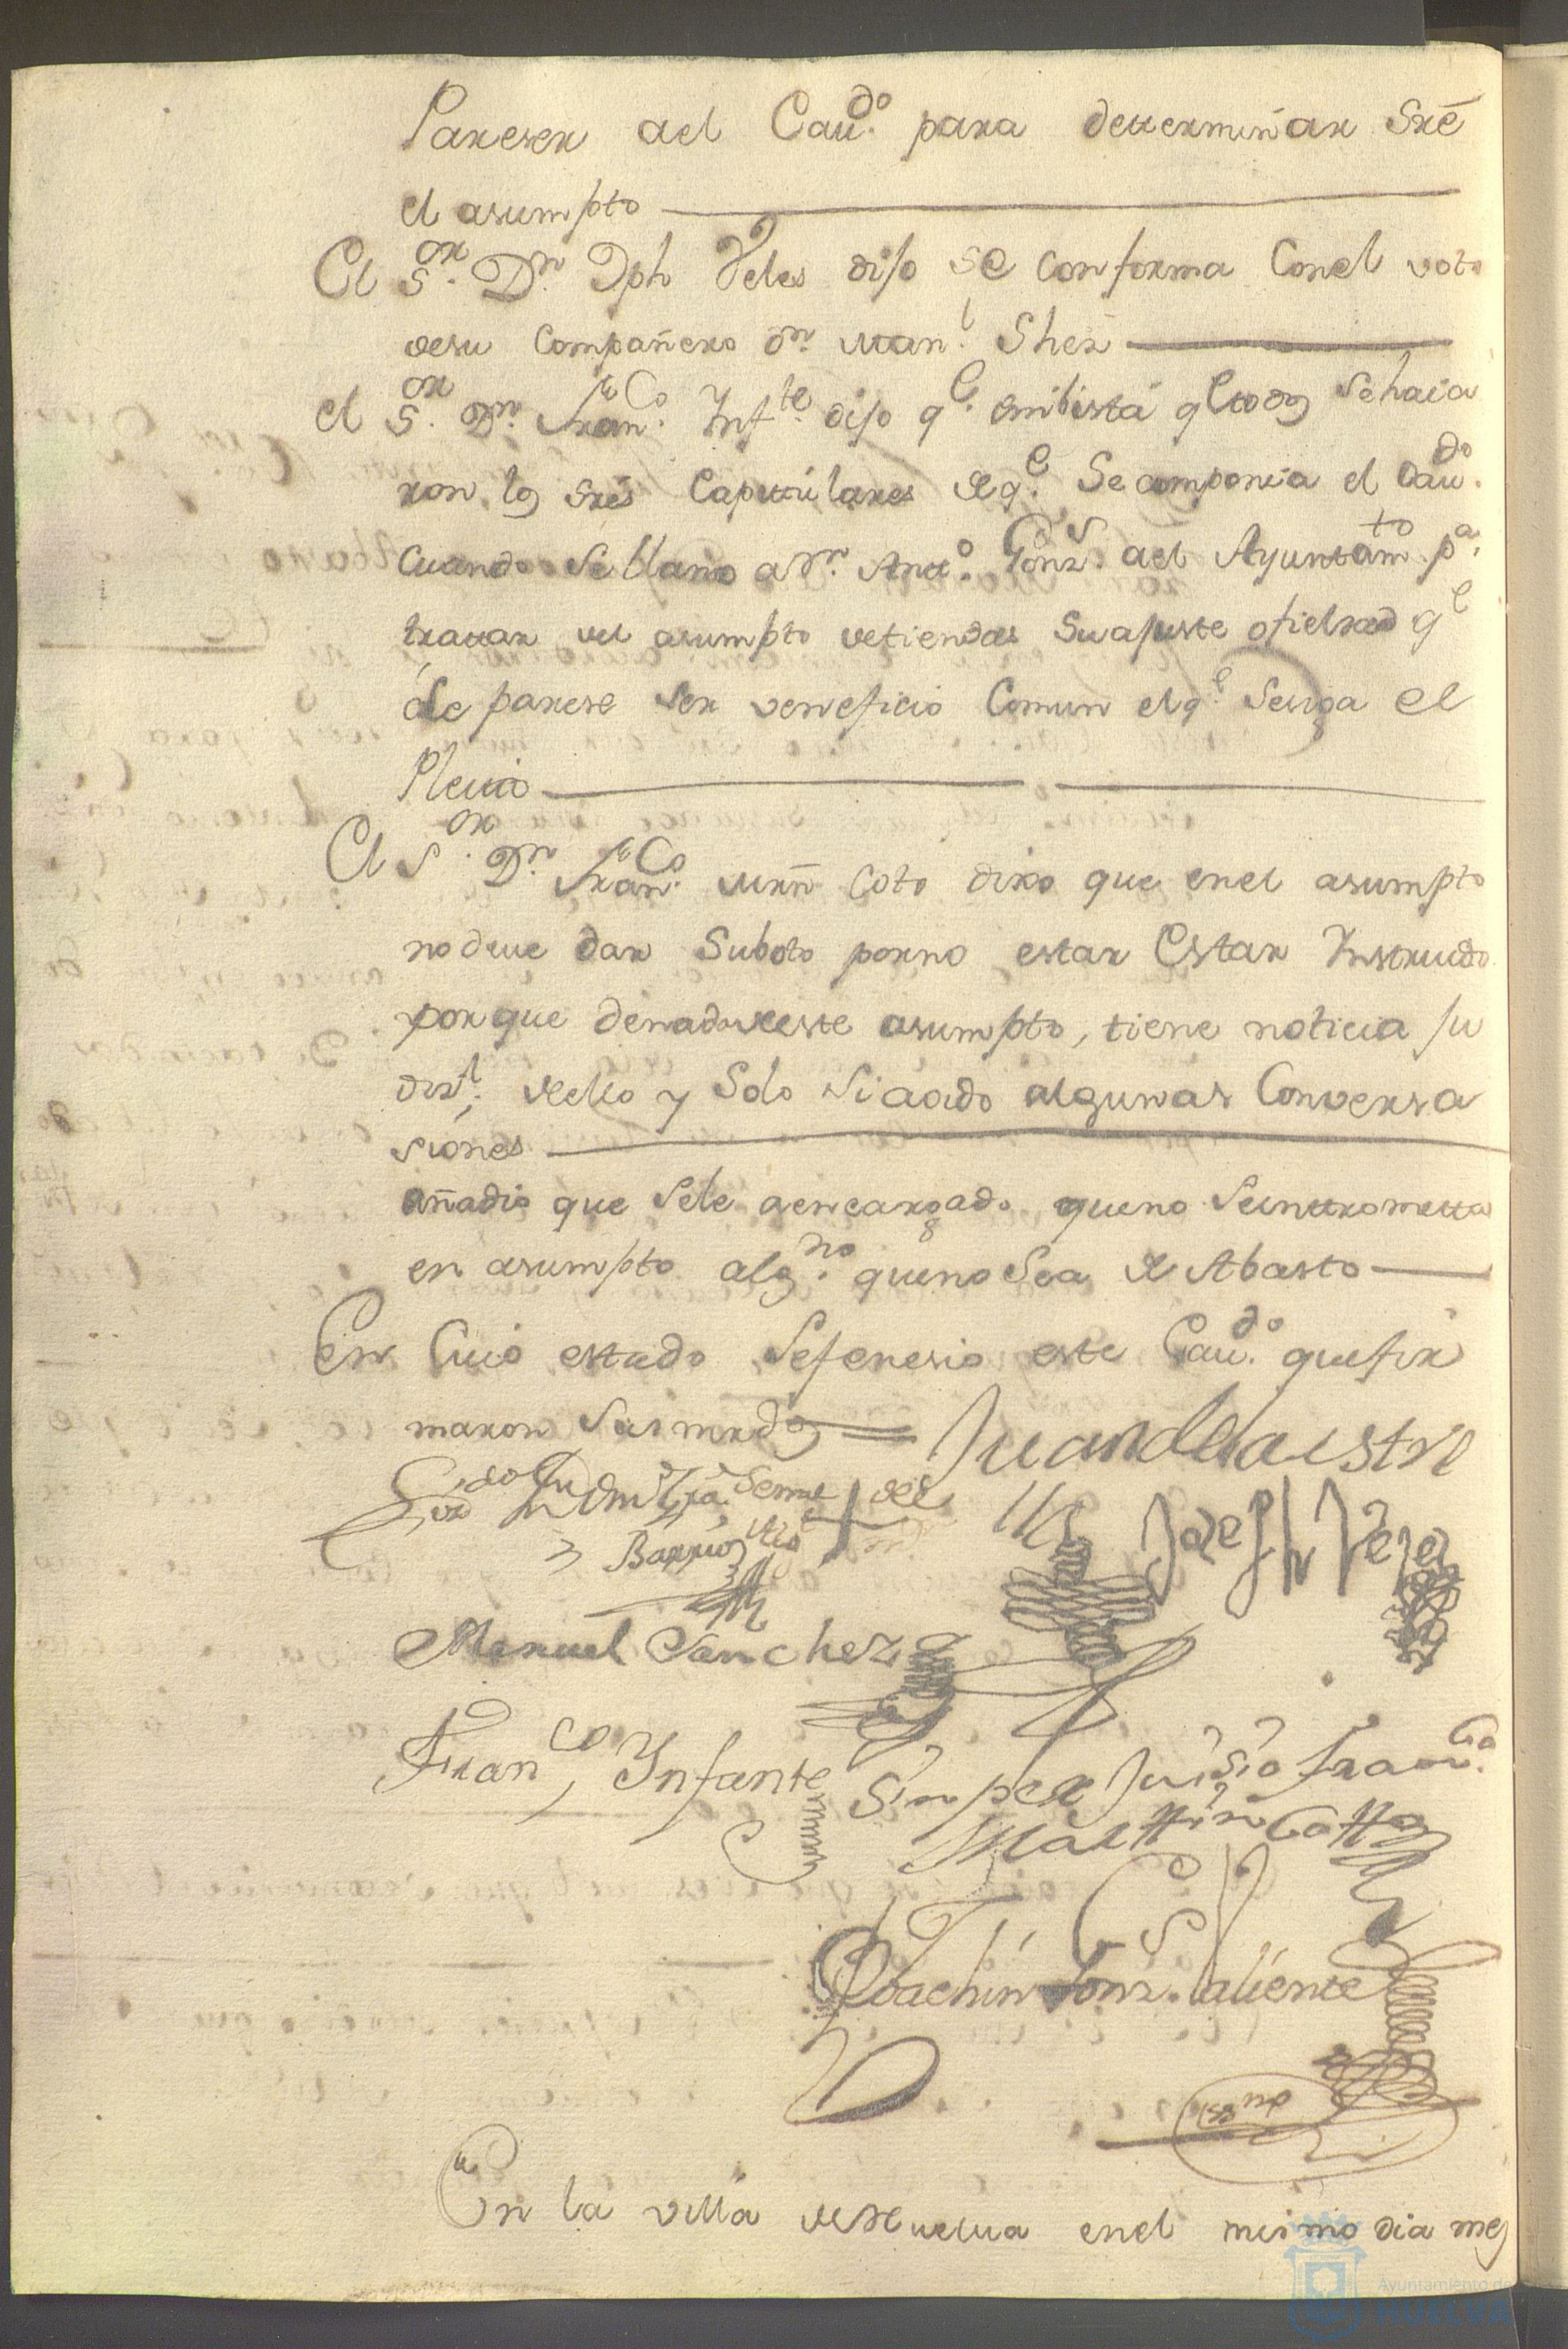 Pareser del Cavdo. para determinar Sre
el asumpto
El Sor. Dn. Jph Veles dijo se conforma Conel voto
desu Compañero dn. Manl. Shez
el Sor. Dn. Franco. Infte. dijo qe. enbista qe todos Sehaia
ron los Sres Capitulares de qe. Se componia el Cavdo.
Cuando Se llamo a Dn. Anto. Gonz. del Ayuntamto. pa.
tratar del asumpto detiendas Suajuste ofieldad qe
le parese ser veneficio Comun el qe. Seciga el
Pleito
El Sor. Dn. Franco. Mrn Coto dixo que enel asumpto
nodeve dar Suboto porno estar Estar Instruido
porque denadadeeste asumpto, tiene noticia ju
disl. dello y Solo Si aoido algunas Conversa
siones
añadio que Sele aencargado queno Seintrometta
en asumpto algno. queno Sea de Abasto
En Cuio estado Sefenesio este Cavdo. quefir
maron Sus mrds
Juan de la estre
Barrios
Joseph Velez
Manuel Sanchez
Franco, Infante
Sin perJuisio franco.
Marttin Cotto
Joachin Gonz. Caliente
En la villa de Huelva enel mismo dia mes
Ayuntamiento de
HUELVA